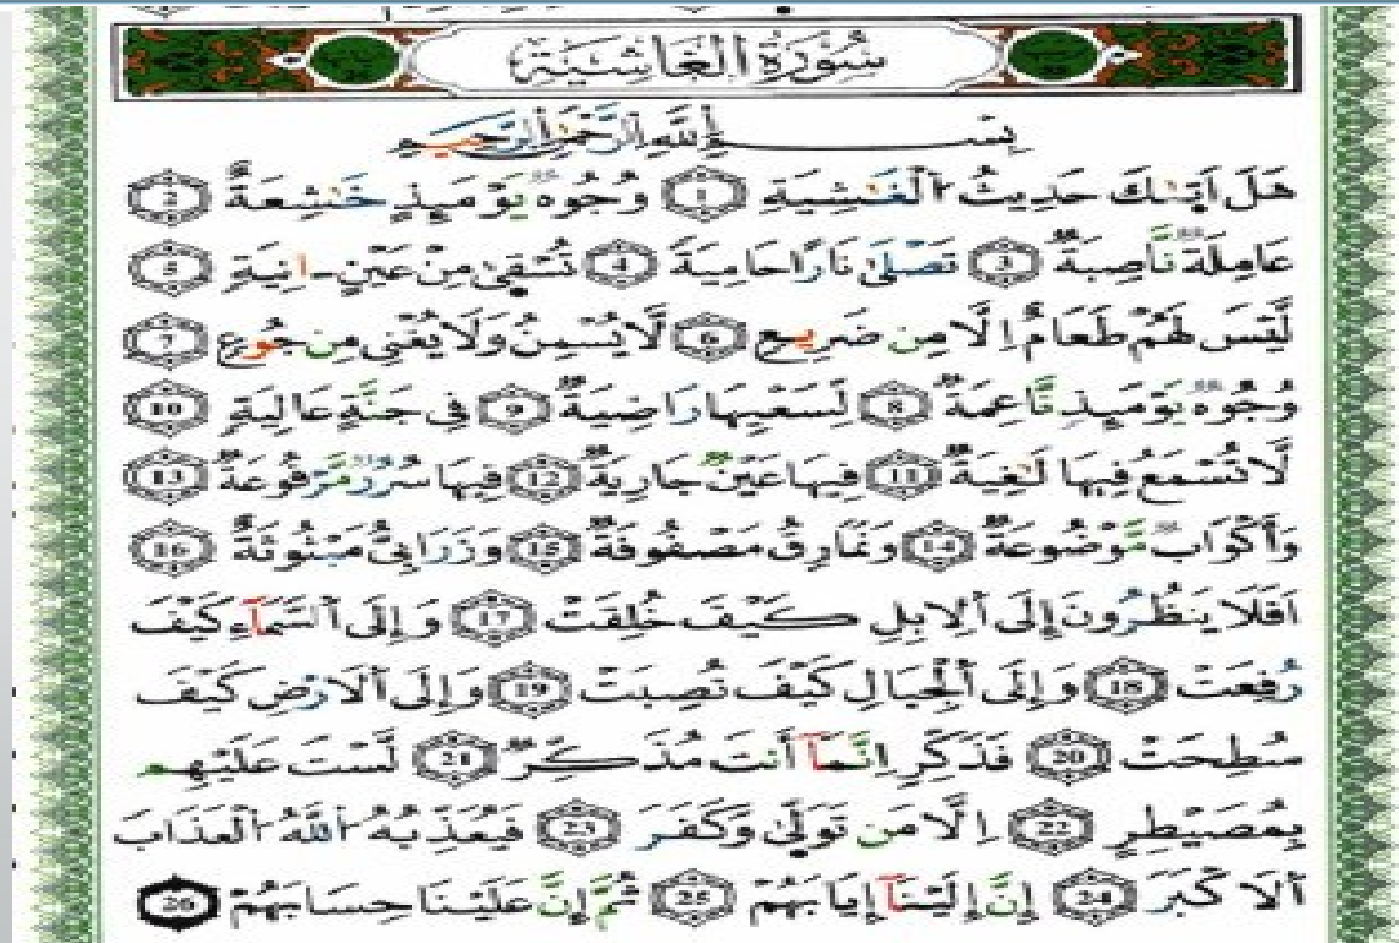 سُورَةُ الْغَاشِيَةِ
بِسْمِ اِ۬للَّهِ اِ۬لرَّحْمَٰنِ اِ۬لرَّحِيمِ
هَلَ اَتَىٰكَ حَدِيثُ اُ۬لْغَٰشِيَةِ 1 وُجُوهٌ يَوْمَئِذٍ خَٰشِعَةٌ 2
عَامِلَةٌ نَّاصِبَةٌ 3 تَصْلَىٰ نَارًا حَامِيَةً 4 تُسْقَىٰ مِنْ عَيْنٍ ـانِيَةٍ 5
لَّيْسَ لَهُمْ طَعَامٌ اِلَّا مِن ضَرِيعٍ 6 لَّا يُسْمِنُ وَلَا يُغْنِي مِن جُوعٍ 7
وُجُوهٌ يَوْمَئِذٍ نَّاعِمَةٌ 8 لِّسَعْيِهَا رَاضِيَةٌ 9 فِي جَنَّةٍ عَالِيَةٍ 10
لَّا تُسْمَعُ فِيهَا لَٰغِيَةٌ 11 فِيهَا عَيْنٌ جَارِيَةٌ 12 فِيهَا سُرُرٌ مَّرْفُوعَةٌ 13
وَأَكْوَابٌ مَّوْضُوعَةٌ 14 وَنَمَارِقُ مَصْفُوفَةٌ 15 وَزَرَابِيُّ مَبْثُوثَةٌ 16
اَفَلَا يَنظُرُونَ إِلَى اَ۬لِابِلِ كَيْفَ خُلِقَتْ 17 وَإِلَى اَ۬لسَّمَآءِ كَيْفَ
رُفِعَتْ 18 وَإِلَى اَ۬لْجِبَالِ كَيْفَ نُصِبَتْ 19 وَإِلَى اَ۬لَارْضِ كَيْفَ
سُطِحَتْ 20 فَذَكِّرِ اِنَّمَآ أَنتَ مُذَكِّرٌ 21 لَّسْتَ عَلَيْهِم
بِمُصَيْطِرٍ 22 اِلَّا مَن تَوَلَّىٰ وَكَفَرَ 23 فَيُعَذِّبُهُ اُ۬للَّهُ اُ۬لْعَذَابَ
اَ۬لَاكْبَرَ 24 إِنَّ إِلَيْنَآ إِيَابَهُمْ 25 ثُمَّ إِنَّ عَلَيْنَا حِسَابَهُمْ 26